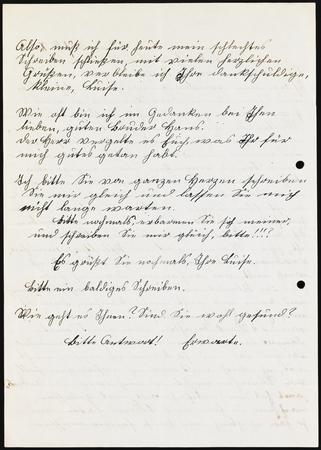 Also, muß ich für heute mein schlechtes
Schreiben schließen, mit vielen herzlichen
Grüßen, verbleibe ich Ihre dankschuldige,
kleine, Luise.
Wie oft bin ich im Gedanken bei Ihen
lieben, guten Bruder Hans.
der Herr vergelte es Euch, was Ihr für
mich gutes getan habt.
Ich bitte Sie von ganzen Herzen schreiben
Sie mir gleich und lassen Sie mich
nicht lange warten.
Bitte nochmals, erbarmen Sie sich meiner,
und schreiben Sie mir gleich, bitte!!!?
Es grüßt Sie nochmals, Ihre Luise.
Bitte ein baldiges Schreiben.
Wie geht es Ihnen? Sind Sie wohl gesund?
Bitte Antwort! Erwarte.